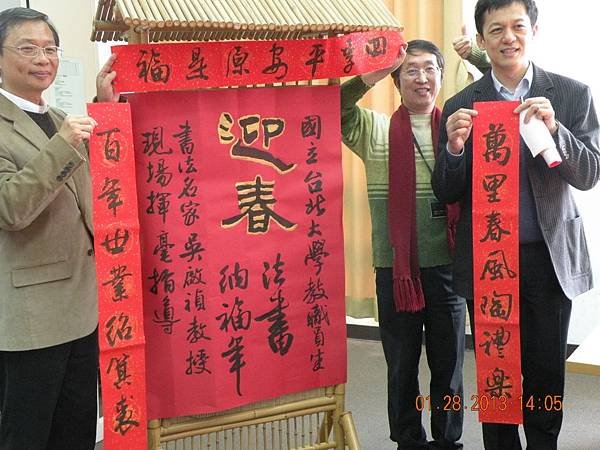 享平安源是福
萬里春風陶禮樂
國立台北大學教職員生
迎春
法書
納福年
書法名家吳啟禎教授
現場揮毫指導
百年世業紹箕裘
01.28.2013 14:05